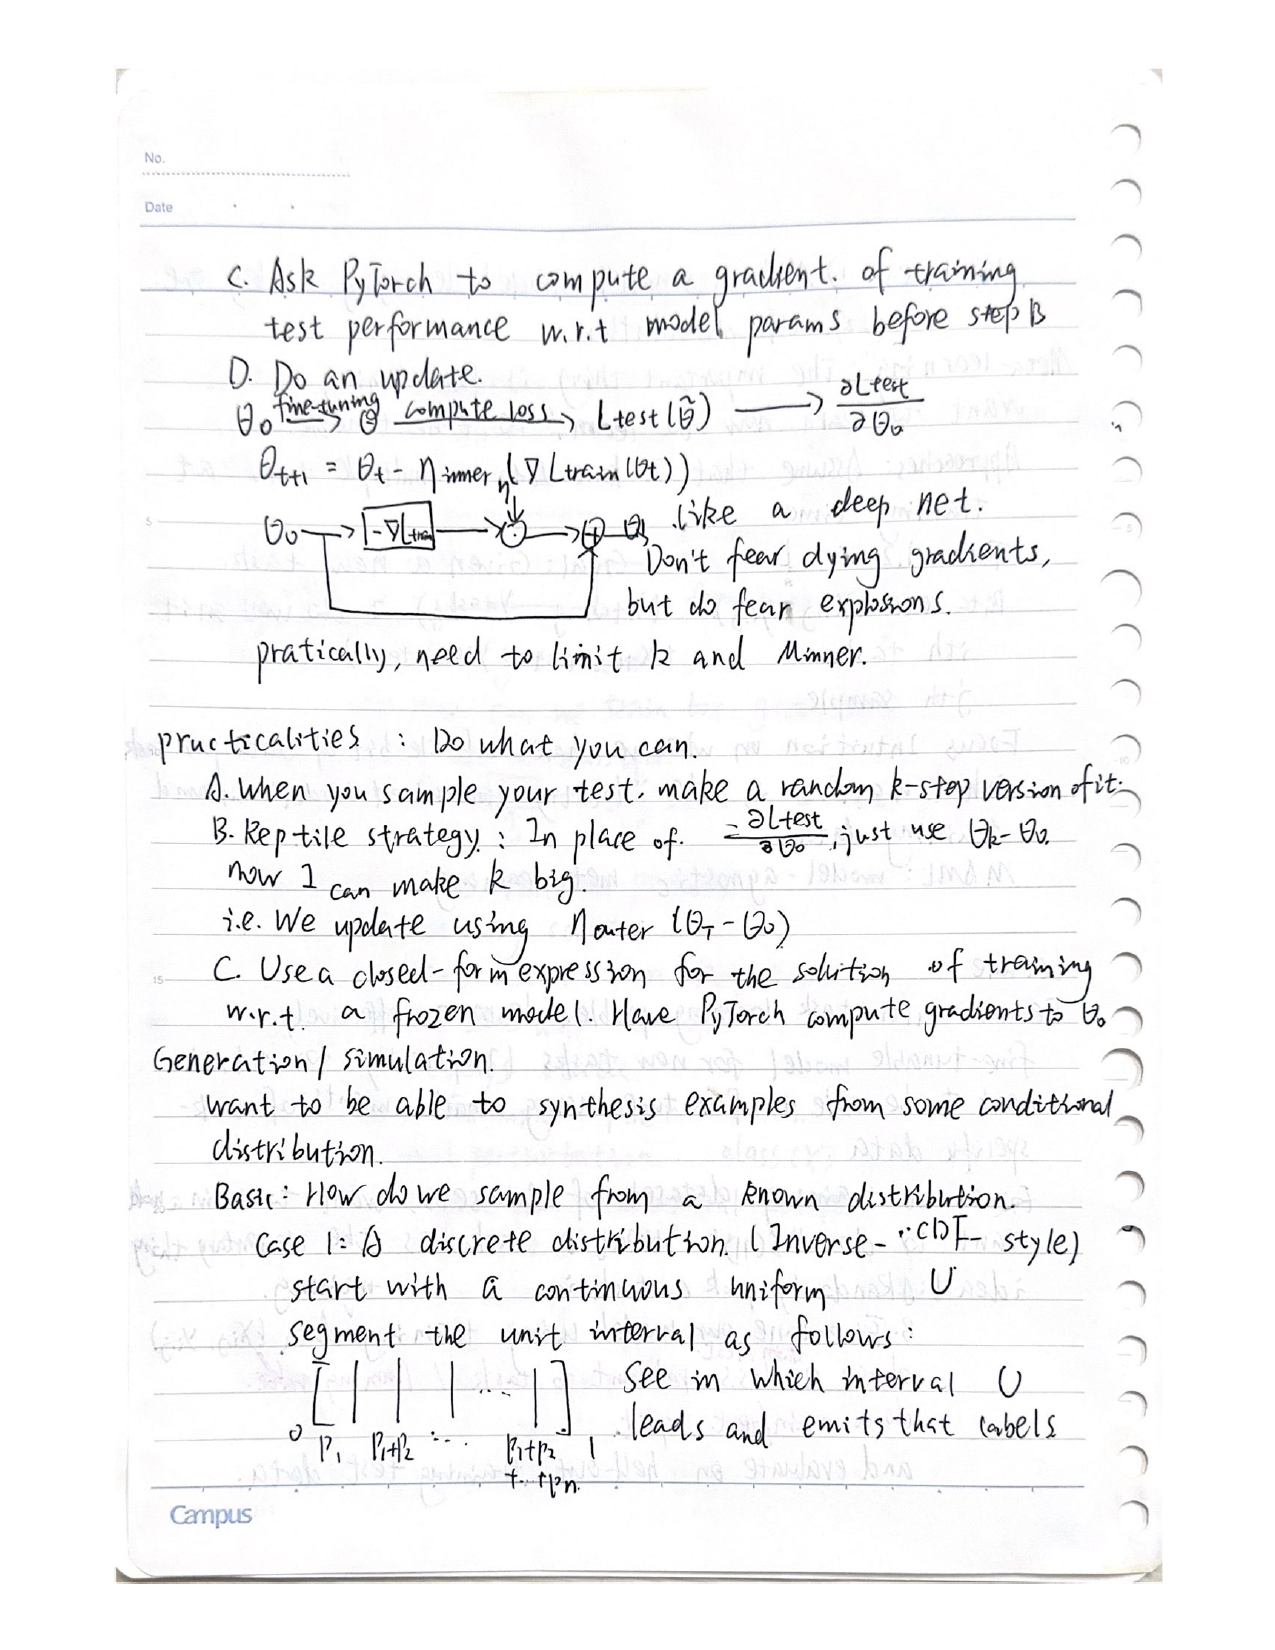 No.
Date
C. Ask PyTorch to compute a gradient. of training
test performance w.r.t model params before step B
D. Do an update.
θ₀ fine-tuning → θ̃ compute loss → Ltest(θ̃) → ∂Ltest/∂θ₀
θt+1 = θt - ηinner (∇Ltrain(θt))
θ₀ → -∇Ltrain → · → + θ₁ like a deep net.
η
Don't fear dying gradients,
but do fear explosions.
pratically, need to limit k and ηinner.
practicalities : Do what you can.
A. When you sample your test. make a random k-step version of it.
B. Reptile strategy : In place of. -∂Ltest/∂θ₀, just use θk-θ₀.
now I can make k big.
i.e. We update using ηouter (θT-θ₀)
C. Use a closed-form expression for the solution of training
w.r.t. a frozen model. Have PyTorch compute gradients to θ₀
Generation/ simulation.
want to be able to synthesis examples from some conditional
distribution.
Basic: How do we sample from a known distribution.
Case 1: A discrete distribution. (Inverse-CDF-style)
start with a continuous uniform U
segment the unit interval as follows:
[ | | | .... | ] see in which interval U
leads and emits that labels
0 P₁ P₁+P₂ ... P₁+P₂ 1
+...+Pn.
5
15
Campus